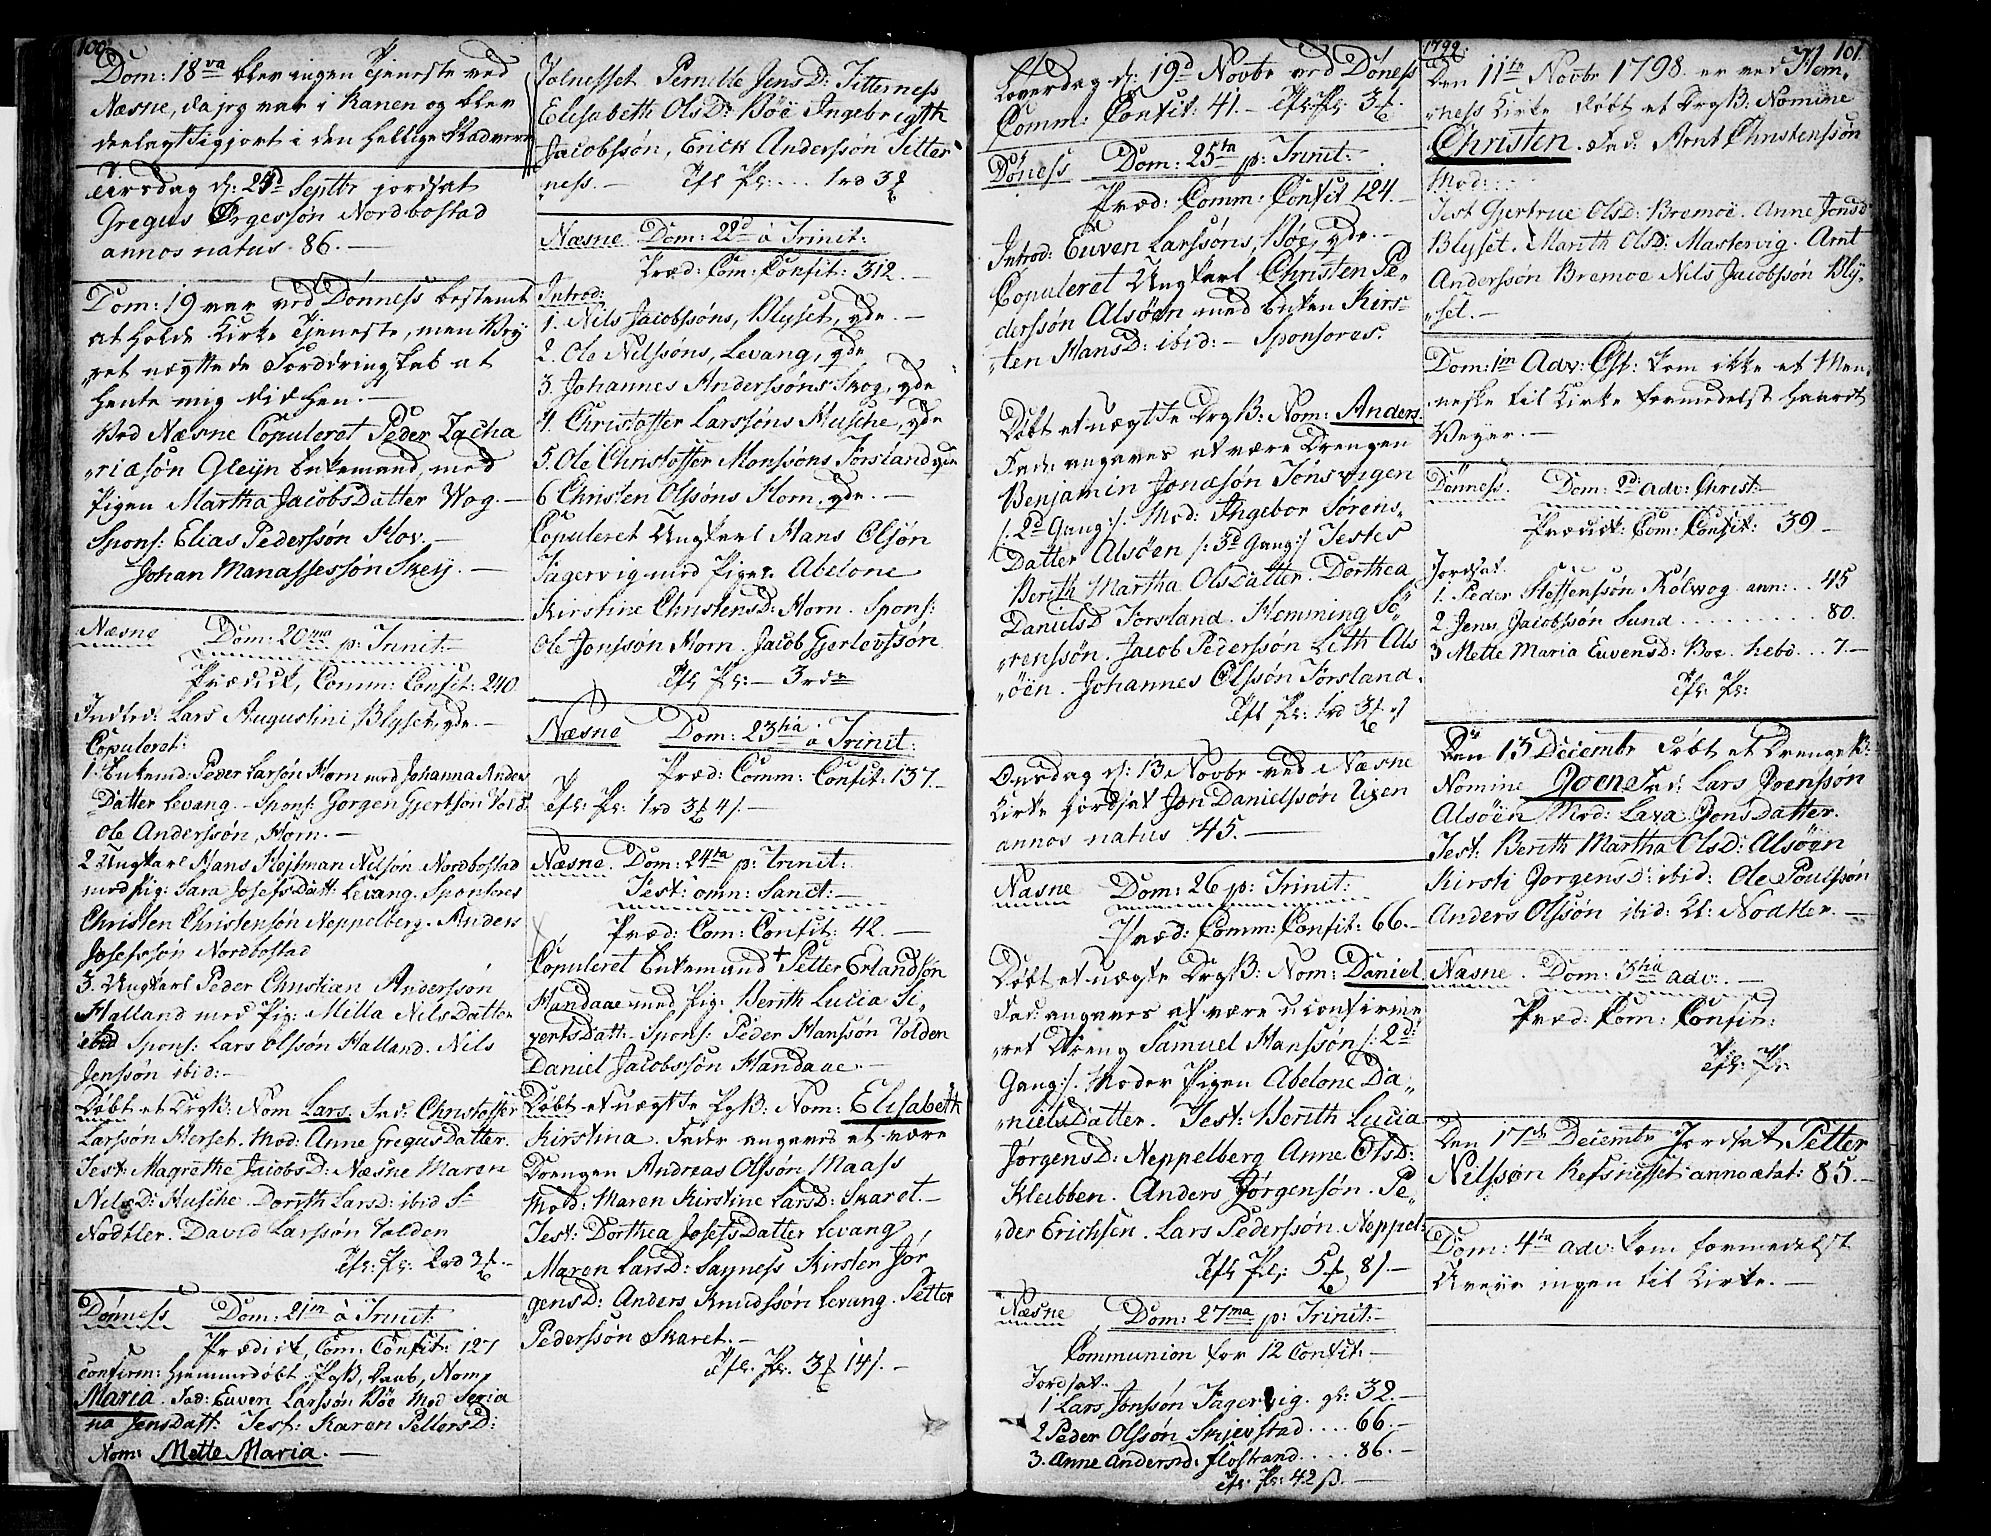 100.
Dom: 18va blev ingen Tjeneste ved
Næsne, da jeg var i Ranen og blev
deelagtiggjort i den hellige Nadvere
Tirsdag d: 25d Septbr jordsat
Gregus Ørgessøn Nordbostad
annos natus 86. —
Dom: 19 var ved Dönness bestemt
at holde Kirke Tjeneste, men Vey
ret nægtede Forddringskab at
hente mig did hen. —
Ved Næsne Copuleret Peder Zacha
riasøn Gleyn Enkemand, med
Pigen Martha JacobsDatter Wog. —
Spons: Elias Pederssøn Hov. —
Johan Manassessøn Skeij. —
Næsne Dom: 20ma p: Trinit:
Prædick, Comm: Confit: 240.
Indled: Lars Augustini Blyset, qde. —
Copuleret:
1. Enkemd: Peder Larsøn Horn med Johanna Anders
Datter Levang. — Spons: Gorgen Gjertsøn Vold.
Ole Anderssøn, Horn. —
2 Ungkarl Hans Hejtman Nilsøn Nordbostad
med Pig: Sara JosefsDatt: Levang. Sponsores
Christen Christensøn Neppelberg. Anders
Josefssøn Nordbostad
3. Ungkarl Peder Christian Anderssøn
Halland med Pig: Milla NilsDatter
ibid Spons: Lars Olssøn Halland. Nils
Jenssøn ibid: —
Döbt et DrgB: Nom Lars. Fad: Christoffer
Larssøn Herset. Mod: Anne GregusDatter.
Test: Magrethe JacobsD: Næsne Maren
NilsD: Husche. Dorith LarsD: ibid S:
Nodtler. David Larssøn Volden
Efl: Pl: 2rd 3
Dønness Dom: 21m à Trinit:
Prædick, Com: Confit: 127
Confirm: Hjemmedöbt PgB, Daab, Nom
Maria. Fad: Euven Larssøn Böe Mod Seria
na JensDatt: Test: Karen PettersD:
Nom: Mette Maria. —
Tolnesset Pernille JensD: Titterness
Elisabeth OlsD: Böe Ingebrigth
Jacobssön, Erick Anderssön Titter
ness. — Efl Pl: ... 1rd 3
Næsne Dom: 22d à Trinit:
Præd: Com: Confit: 312. —
Introd:
1. Nils Jacobssöns, Blyset, qde. —
2. Ole Nilssöns, Levang, qde
3. Johannes Anderssöns Skog, qde
4. Christoffer Larssöns Husche, qde
5. Ole Christoffer Monssöns Forsland qde
6 Christen Olssöns Horn, qde. —
Copuleret Ungkarl Hans Olsön
Fagervig med Pigen Abelone
Kirstine ChristensD: Horn. Spons:
Ole Jonssön Horn. Jacob Gjerlovssön
Efl Pl: — 3rdr
Næsne Dom: 23tia à Trinit:
Præd: Comm: Confit: 137. —
Efl: Pl: 1rd 3 4/. —
Næsne. Dom: 24ta p: Trinit:
Fest: omn: Sanct: —
Præd: Com: Confit: 42. —
Copuleret Enkemand + Petter Erlandsøn
Handaae med Pig: Berith Lucia Si
vertsDatt: Spons: Peder Hanssøn Volden
Daniel Jacobssön Handaae. —
Döbt et uægte PgB: Nom: Elisabeth
Kirstina. Fader angaves at være
Drengen Andreas Olssøn Maass
Mod: Maren Kirstine LarsD: Skaret. —
Test: Dorthea JosefsDatter Levang
Maren LarsD: Sayness Kirsten Jör
gensD: Anders Knudssön Levang. Petter
Pederssön Skaret. —
Efl. Pl. 3 14/. —
Löverdag d: 19d Novbr ved Döness
Comm: Confit: 41. — Efl: Pl: 3
Döness Dom: 25ta p: Trinit:
Præd: Comm: Confit 124. —
Introd: Euven Larssöns, Böe, qde. —
Copuleret Ungkarl Christen Pe
derssön Alsöen med Enken Kirs
ten HansD: ibid: — Sponsores.
Döbt et uægte DrgB: Nom: Anders
Fader angaves at være Drengen
Benjamin Jonasön Tönsvigen
/: 2d Gang :/. Mod: Ingebor Sörens
Datter Alsöen /: 3d Gang :/ Testes
Berith Martha OlsDatter. Dorthea
DanielsD Forsland. Hemming Sö
renssön. Jacob Pederssön Leth Als
öen. Johannes Olssön Forsland.
Efl Pl: 1rd 3
Onsdag d: 13 Novbr ved Næsne
Kirke jordsat Jon Danielssön Uxen
annos natus 45. —
Næsne Dom: 26 p: Trinit:
Præd: Comm: Confit: 66. —
Döbt et uægte DrgB: Nom: Daniel
Fad: angaves at være uconfirme
ret Dreng Samuel Hanssön /: 2d
Gang :/. Moder Pigen Abelone Da
nielsDatter. Test: Berith Lucia
JørgensD: Neppelberg Anne OlsD:
Klubben. Anders Jørgensøn. Pe
der Erichsen. Lars Pederssön Neppel:
Efl Pl: 5 8/. —
Næsne Dom: 27ma p: Trinit:
Communion for 12 Confit: —
Jordsat.
1 Lars Jonssön Fagervig. gl: 32. —
2 Peder Olssön Skjevstad .... 66. —
3. Anne AndersD: Flostrand .... 86. —
Efl: Pl: 42 ß. —
1799: 101
Den 11te Novbr 1798. er ved Hem
ness Kirke döbt et DrgB: Nomine
Christen. Fad: Arnt Christenssön
Mod:
Test Gjertrue OlsD: Bremoe. Anne JonsD
Blyset. Marith OlsD: Mastervig. Arnt
Anderssön Bremoe Nils Jacobssön Bly
set. —
Dom: 1m Adv: Chr: kom ikke et Men
neske til Kirke formedelst haardt
Veyer. —
Dönness. Dom: 2di Adv: Christ: —
Prædick: Com: Confit: 39 —
Jordsat.
1. Peder Steffenssön Kölwog ann: .. 45
2. Jens Jacobssön Sund ......... 80.
3 Mette Maria EuvensD: Boe. hebd. .. 7. —
Efl: Pl:
Den 13 Decembr döbt et DrengeB:
Nomine Joen Fad: Lars Joenssön
Alsöen Mod: Lava JonsDatter.
Test: Berith Martha OlsD: Alsöen
Kirsti JorgensD: ibid: Ole Poulssön
Anders Olssön ibid: Kl: Nodtler. —
Næsne. Dom: 3tia adv: —
Præd: Com: Confit:
Efl: Pl:
Den 17de Decembr Jordsat Petter
Nilssøn Refsnesset anno ætat: 85. —
Dom: 4ta adv: kom formedelst
Uveyr ingen til Kirke. —